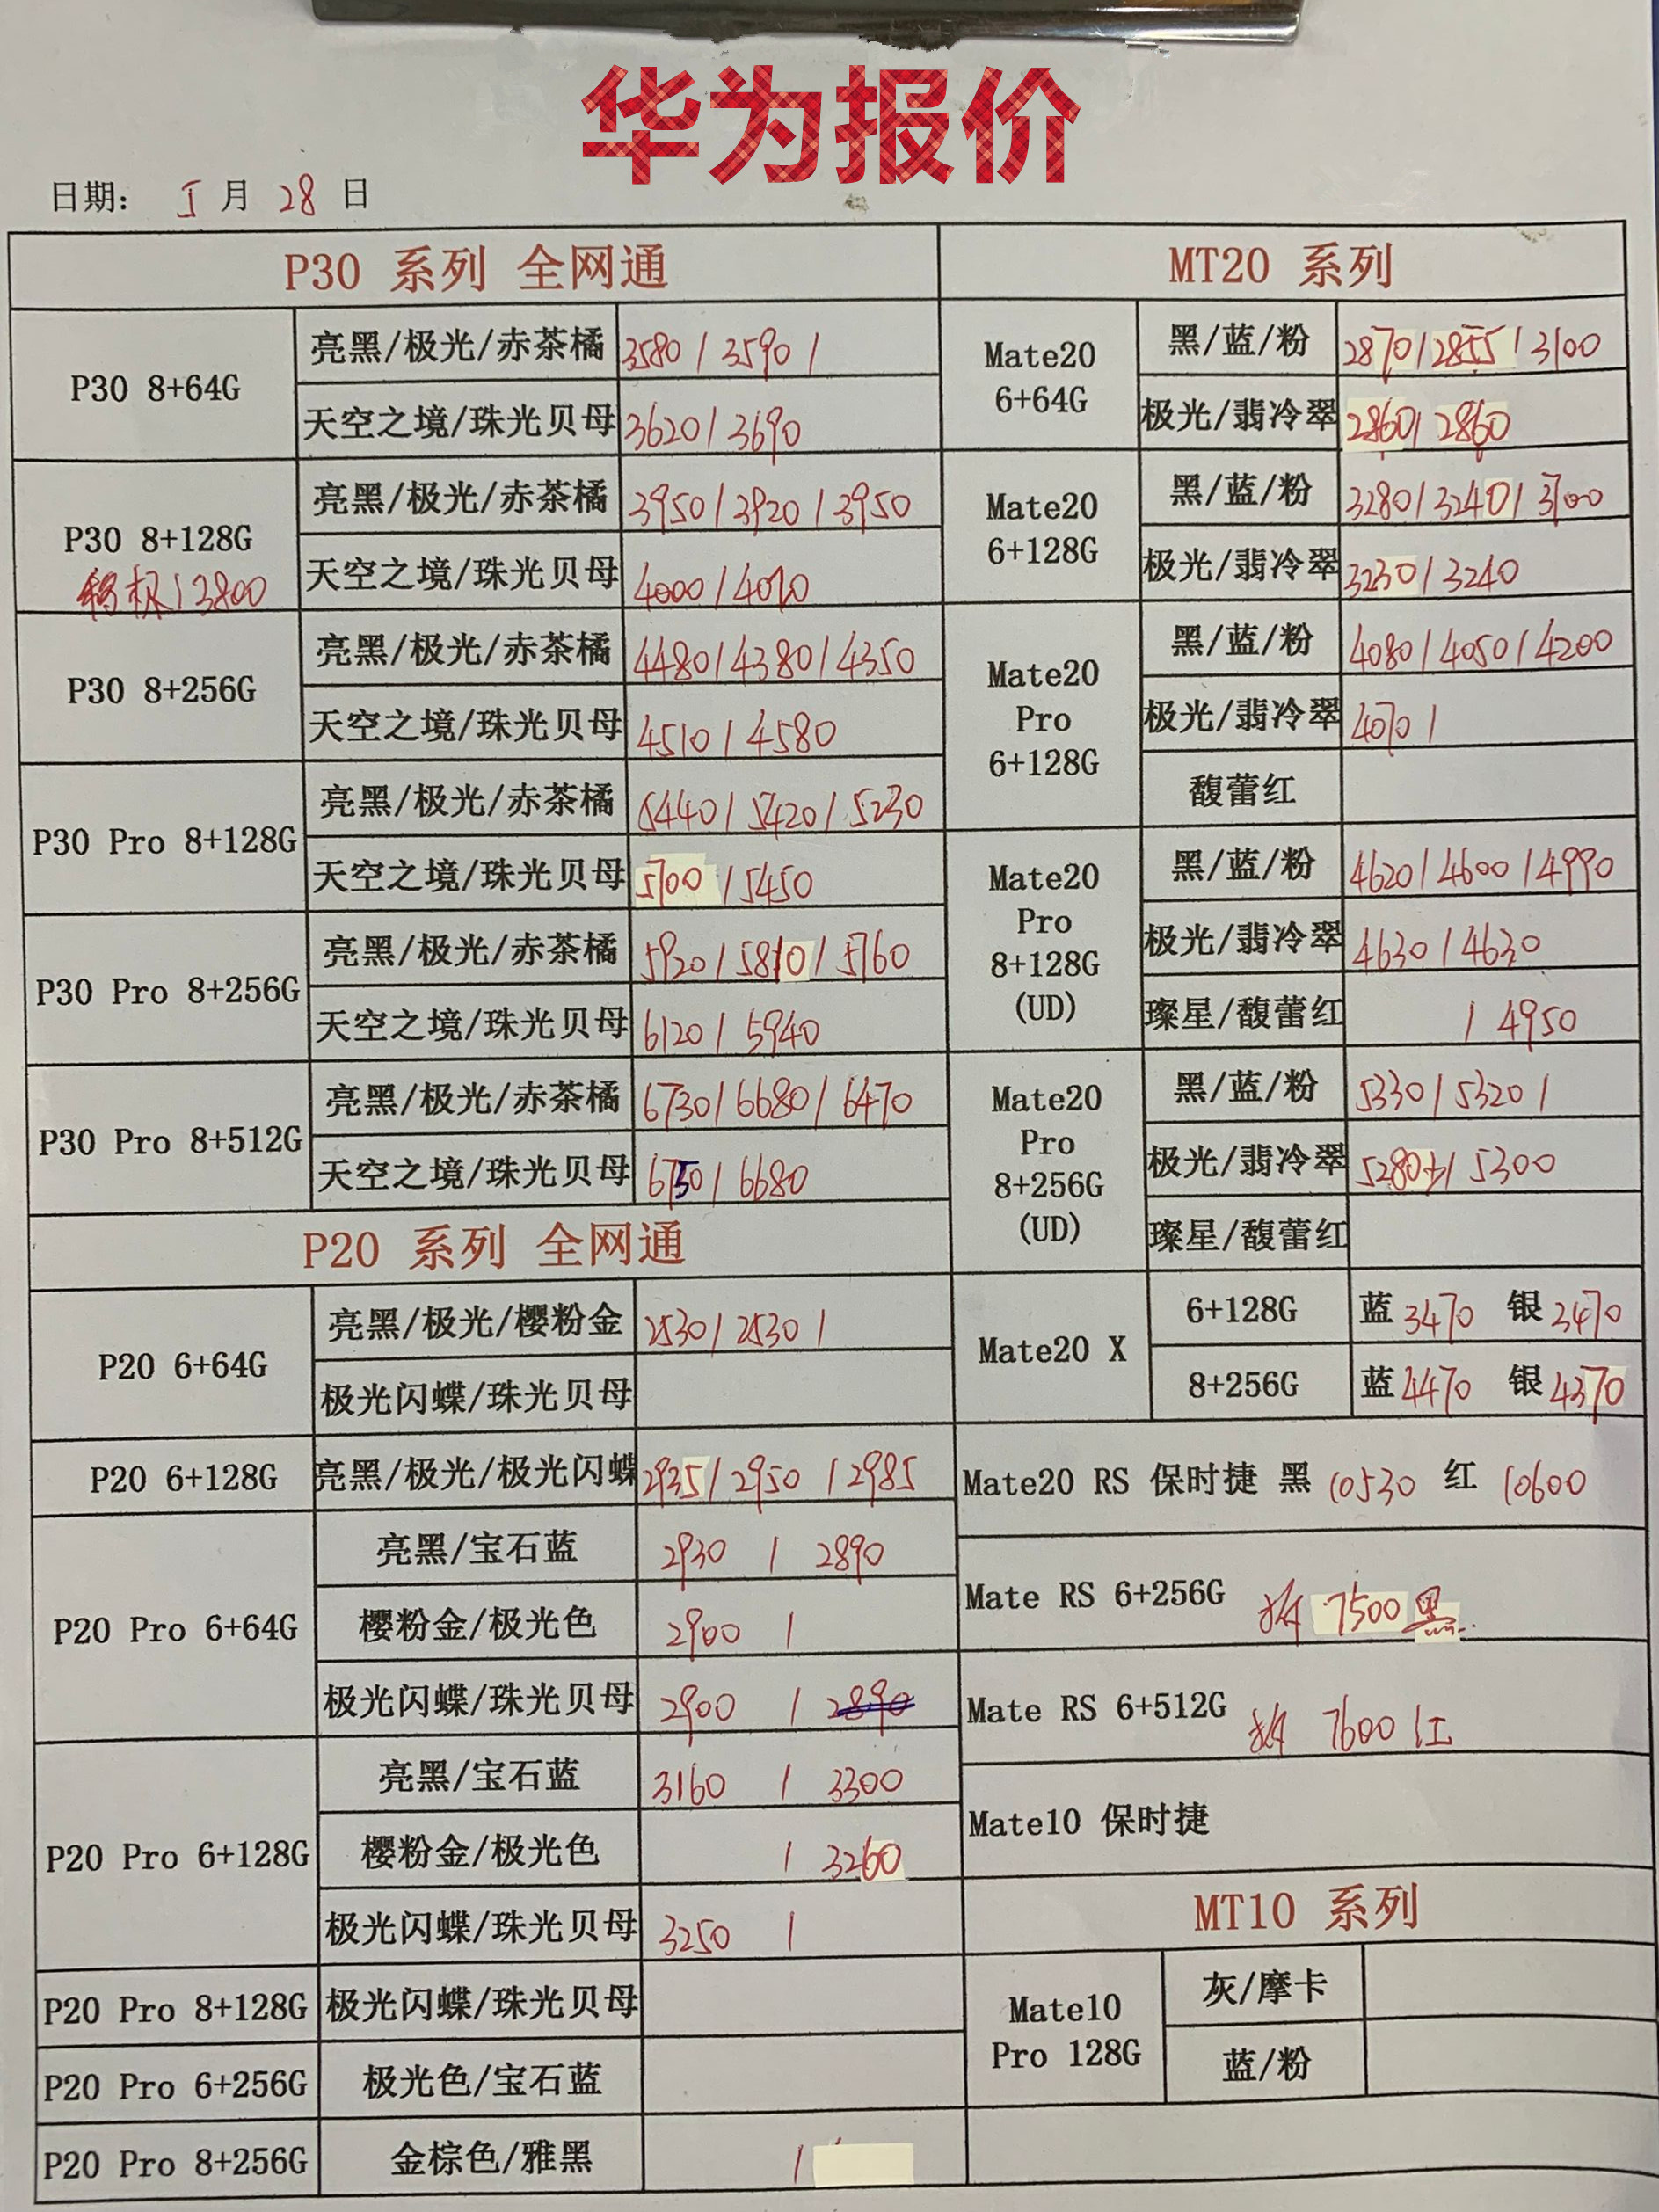 华为报价
日期: 5 月 28 日
P30 系列 全网通
P30 8+64G
亮黑/极光/赤茶橘 3580/3590/
天空之境/珠光贝母 3620/3690
P30 8+128G
移极/3800
亮黑/极光/赤茶橘 3950/3920/3950
天空之境/珠光贝母 4000/4070
P30 8+256G
亮黑/极光/赤茶橘 4480/4380/4350
天空之境/珠光贝母 4510/4580
P30 Pro 8+128G
亮黑/极光/赤茶橘 5440/5420/5230
天空之境/珠光贝母 5700/5450
P30 Pro 8+256G
亮黑/极光/赤茶橘 5920/5810/5760
天空之境/珠光贝母 6120/5940
P30 Pro 8+512G
亮黑/极光/赤茶橘 6730/6680/6470
天空之境/珠光贝母 6750/6680
P20 系列 全网通
P20 6+64G
亮黑/极光/樱粉金 2530/2530/
极光闪蝶/珠光贝母
P20 6+128G
亮黑/极光/极光闪蝶 2935/2950/2985
P20 Pro 6+64G
亮黑/宝石蓝 2930 / 2890
樱粉金/极光色 2900 /
极光闪蝶/珠光贝母 2900 / 2890
P20 Pro 6+128G
亮黑/宝石蓝 3160 / 3300
樱粉金/极光色 / 3260
极光闪蝶/珠光贝母 3250 /
P20 Pro 8+128G 极光闪蝶/珠光贝母
P20 Pro 6+256G 极光色/宝石蓝
P20 Pro 8+256G 金棕色/雅黑 /
MT20 系列
Mate20
6+64G
黑/蓝/粉 2870/2855/3100
极光/翡冷翠 2860/2860
Mate20
6+128G
黑/蓝/粉 3280/3240/3700
极光/翡冷翠 3230/3240
Mate20
Pro
6+128G
黑/蓝/粉 4080/4050/4200
极光/翡冷翠 4070/
馥蕾红
Mate20
Pro
8+128G
(UD)
黑/蓝/粉 4620/4600/4990
极光/翡冷翠 4630/4630
璨星/馥蕾红 / 4950
Mate20
Pro
8+256G
(UD)
黑/蓝/粉 5330/5320/
极光/翡冷翠 5280/5300
璨星/馥蕾红
Mate20 X
6+128G 蓝 3470 银 3470
8+256G 蓝 4470 银 4370
Mate20 RS 保时捷 黑 10530 红 10600
Mate RS 6+256G 拆 7500 黑
Mate RS 6+512G 拆 7600 红
Mate10 保时捷
MT10 系列
Mate10
Pro 128G
灰/摩卡
蓝/粉